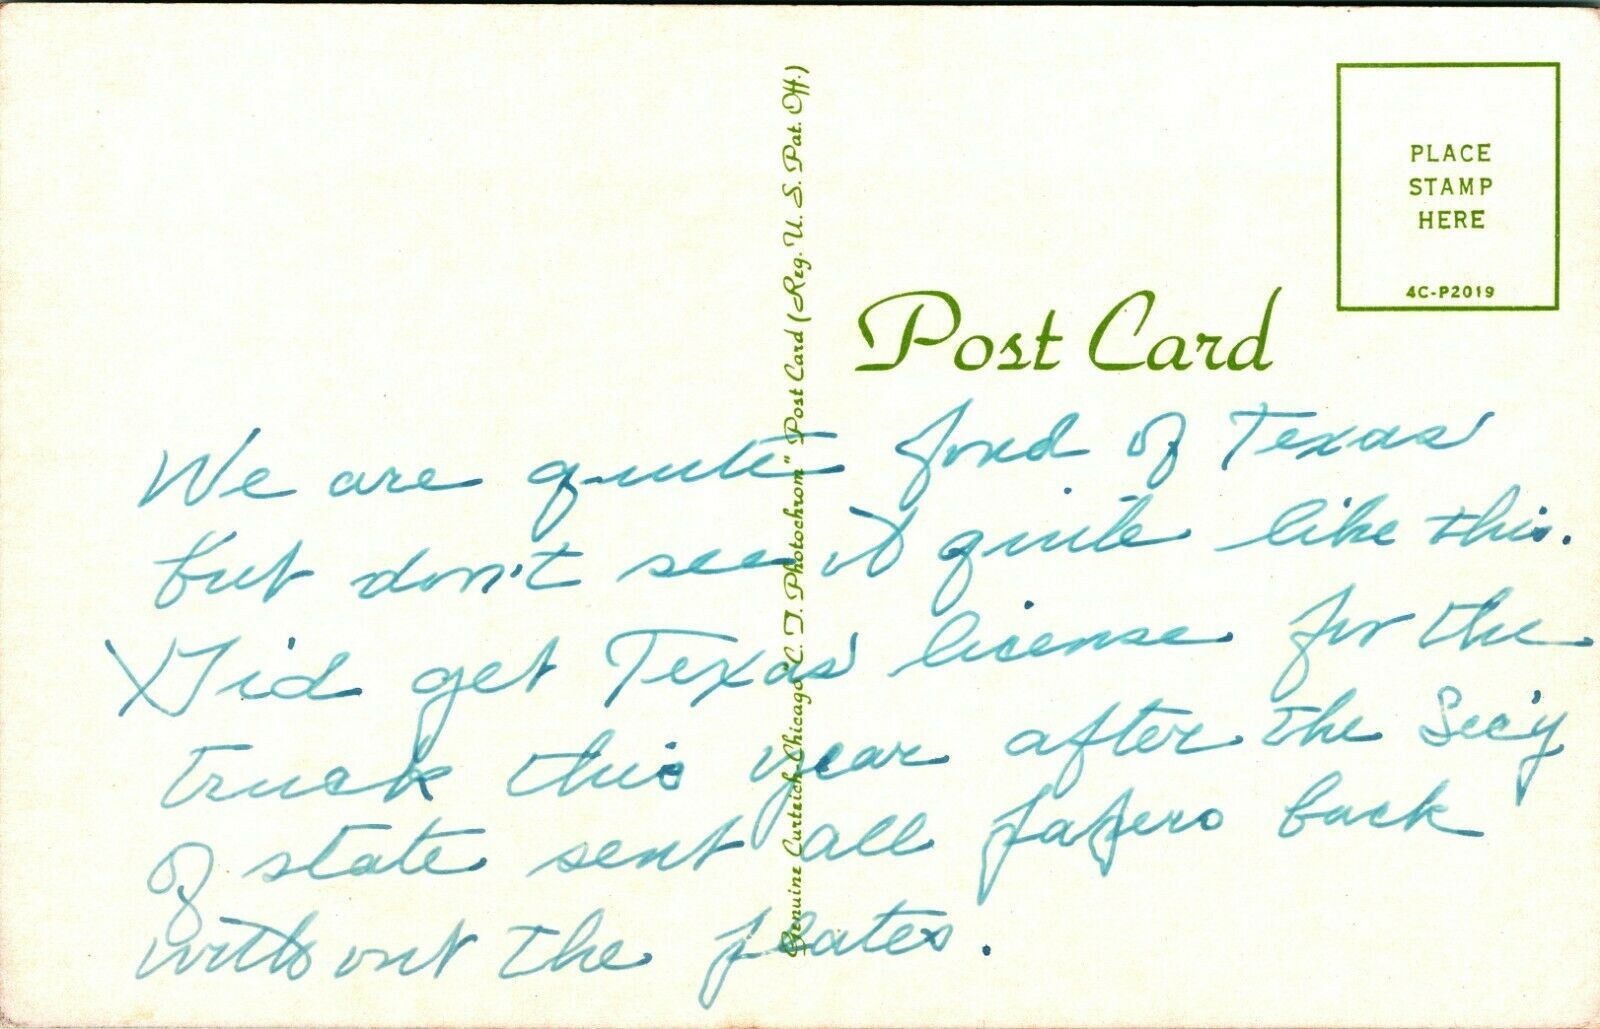 PLACE
STAMP
HERE
4C-P2019
Post Card
Genuine Curteich-Chicago "C. T. Photochrom" Post Card (Reg. U. S. Pat. Off.)
We are quite fond of Texas
but don't see it quite like this.
Did get Texas license for the
truck this year after the Sec'y
of state sent all papers back
without the plates.